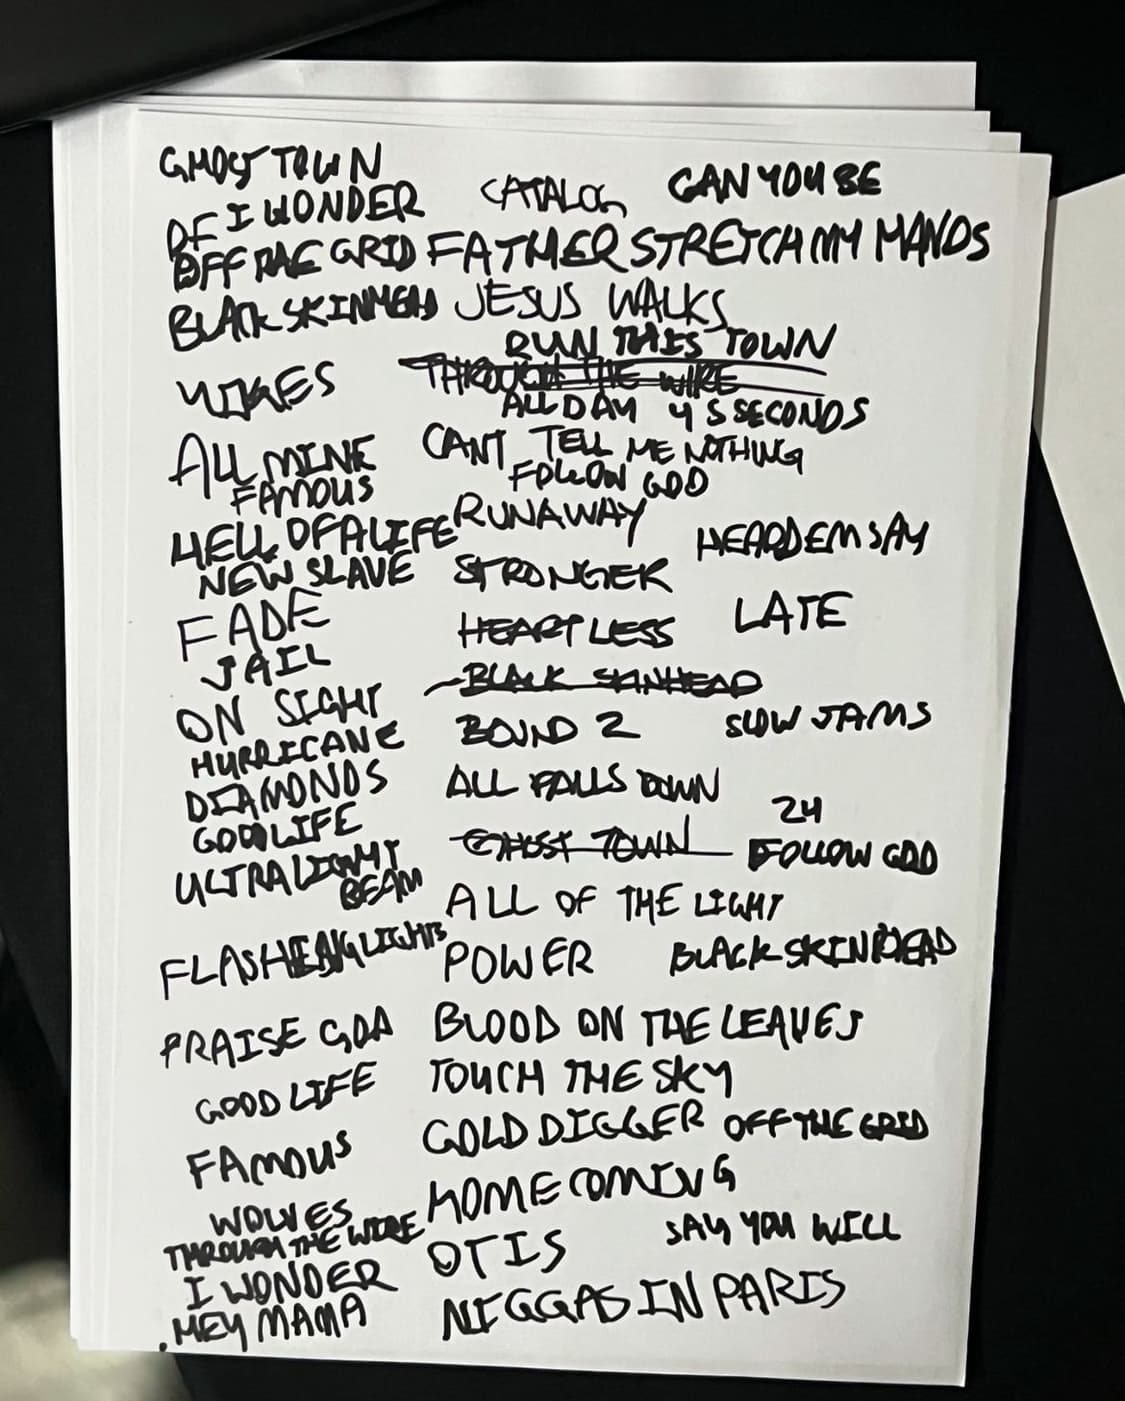 GHOST TOWN
OF I WONDER
OFF DAE GRID
BLACK SKINHEAD
YIKES
ALL MINE
FAMOUS
HELL OF A LIFE
NEW SLAVE
FADE
JAIL
ON SIGHT
HURRICANE
DIAMONDS
GOOD LIFE
ULTRALIGHT
BEAM
FLASHING LIGHTS
PRAISE GOD
GOOD LIFE
FAMOUS
WOLVES
THROUGH THE WIRE
I WONDER
HEY MAMA
CATALOG
FATHER STRETCH MY HANDS
JESUS WALKS
RUN THIS TOWN
THROUGH THE WIRE
ALL DAY 4 5 SECONDS
CANT TELL ME NOTHING
FOLLOW GOD
RUNAWAY
STRONGER
HEARTLESS
BLACK SKINHEAD
BOUND 2
ALL FALLS DOWN
GHOST TOWN
ALL OF THE LIGHT
POWER
BLOOD ON THE LEAVES
TOUCH THE SKY
GOLD DIGGER
HOMECOMING
OTIS
NIGGAS IN PARIS
CAN YOU BE
HEARD EM SAY
LATE
SLOW JAMS
24
FOLLOW GOD
BLACK SKINHEAD
OFF THE GRID
SAY YOU WILL